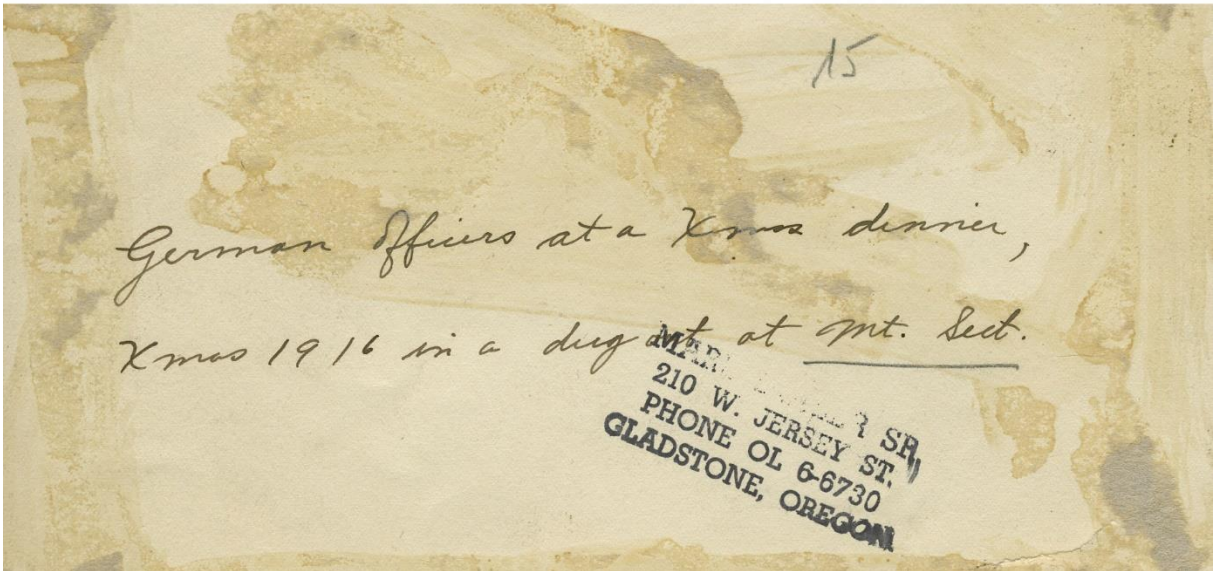 15
German officers at a Xmas dinner,
Xmas 1916 in a dug out at Mt. Sect.
SR.
210 W. JERSEY ST.
PHONE OL 6-6730
GLADSTONE, OREGON